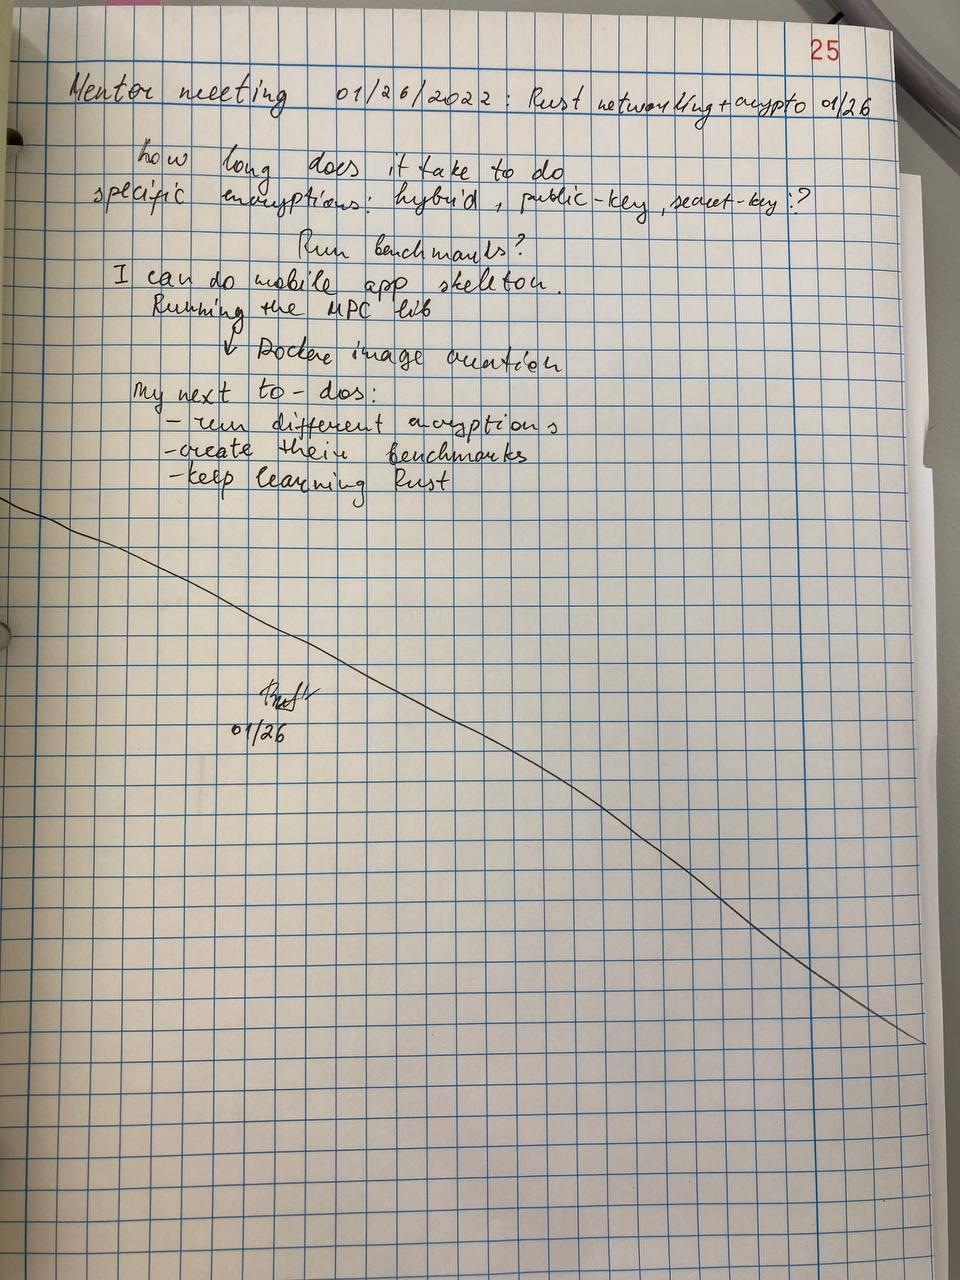 25
Mentor meeting 01/26/2022: Rust networking + crypto 01/26
how long does it take to do
specific encryptions: hybrid, public-key, secret-key:?
Run benchmarks?
I can do mobile app skeleton.
Running the MPC lib
↓ Docker image creation
My next to-dos:
- run different encryptions
- create their benchmarks
- keep learning Rust
01/26